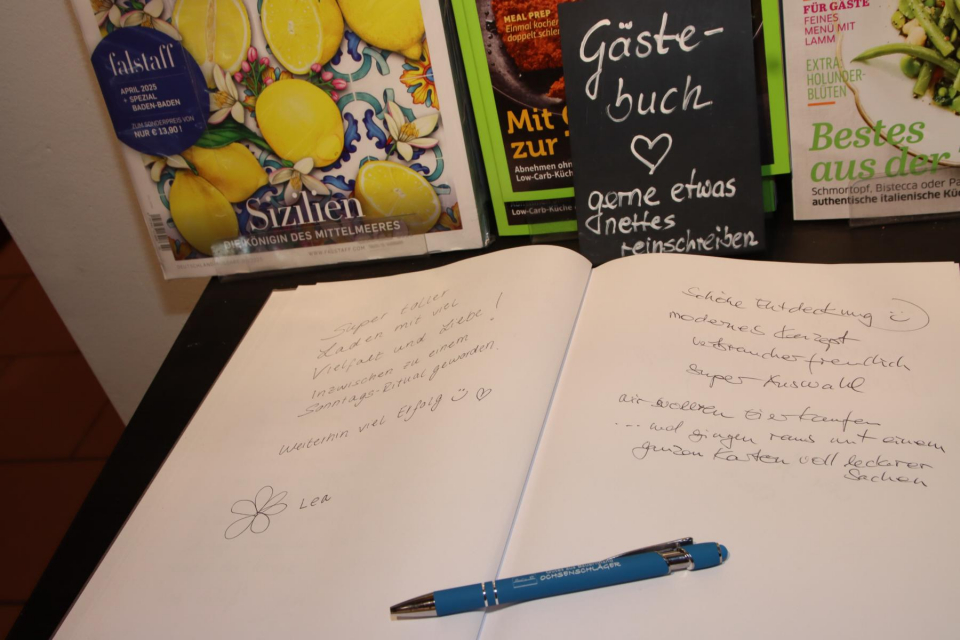 falstaff
APRIL 2025
+ SPEZIAL
BADEN-BADEN
ZUM SONDERPREIS VON
NUR € 13,90!
Sizilien
DIE KÖNIGIN DES MITTELMEERES
MEAL PREP
Einmal kochen
doppelt
Mit
zur
Abnehmen ohne
Low-Carb-Küche
Low-Carb-Küche
Gäste-
buch
gerne etwas
nettes
reinschreiben
FÜR GÄSTE
FEINES
MENÜ MIT
LAMM
EXTRA
HOLUNDER-
BLÜTEN
Bestes
aus der
Schmortopf, Bistecca oder
authentische italienische
Super toller
Laden mit viel
Vielfalt und Liebe!
Inzwischen zu einem
Sonntags-Ritual geworden.
Weiterhin viel Erfolg
Lea
Schöne Entdeckung
modernes Konzept
verbraucherfreundlich
Super Auswahl
wir wollten Eier kaufen
... und gingen raus mit einem
ganzen Kasten voll leckerer
Sachen
OCHSENSCHLÄGER